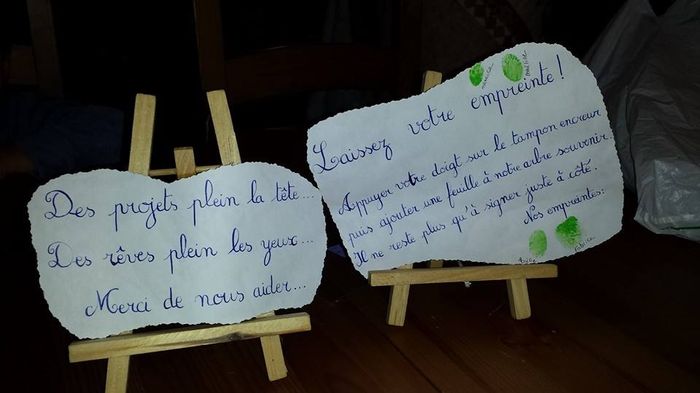 Des projets plein la tête...
Des rêves plein les yeux...
Merci de nous aider...
Laissez votre empreinte !
Appuyer votre doigt sur le tampon encreur
puis ajouter une feuille à notre arbre souvenir.
Il ne reste plus qu'à signer juste à côté.
Nos empreintes: